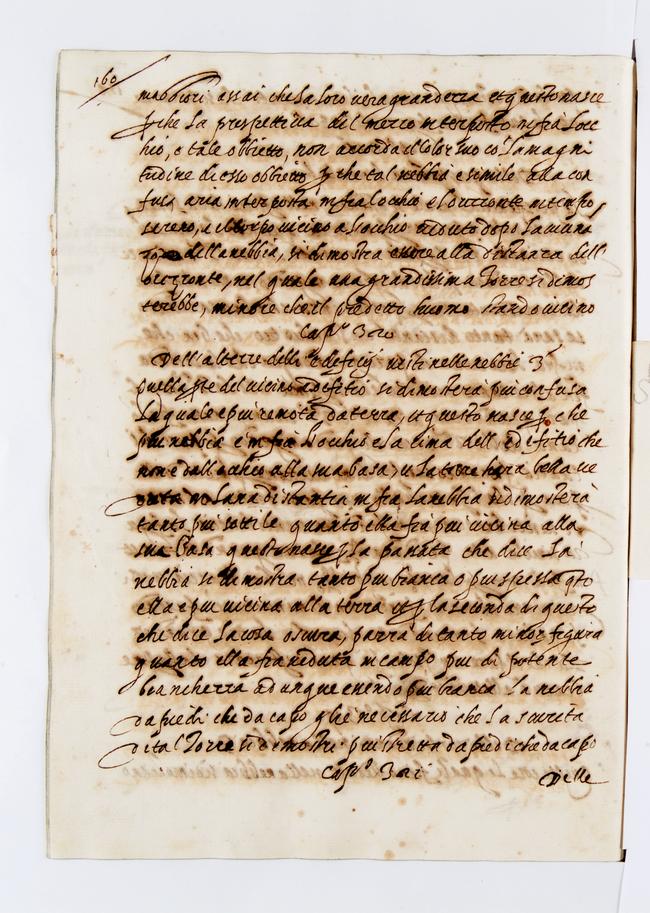 160
maggiori assai che la loro vera grandezza et questo nasce
perche la prospettiva del mezzo interposto infra l'occ
hio, e tale obbietto, non accorda il color suo co la magni
tudine di esso obbietto perche tal nebbia e simile alla con
fusa aria interposta infra l'ochio e l'orizonte in tempo
sereno, e il corpo vicino a l'occhio veduto dopo la vicina
della nebbia, si dimostra essere alla distanza dell
orizonte, nel quale una grandissima Torre si dimos
terebbe, minore che il predetto huomo stando vicino
Cap.º 300
Dell'altezze delli edeficij visti nelle nebbie
quella pte del vicino adefitio si dimosterà piu confusa
la quale e piu remota da terra, et questo nasce che
piu nebbia e infra l'occhio e la cima dell edefitio che
non e dall occhio alla sua basa, et la torre
veduta in lunga distantia infra la nebbia si dimosterà
tanto piu sottile quanto ella fia piu vicina alla
sua Basa questo nasce p la passata che dice la
nebbia si dimostra tanto piu bianca o piu spessa qto
ella e piu vicina alla terra et p la seconda di questo
che dice la cosa oscura, parrà di tanto minor figura
quanto ella fia veduta in campo piu di potente
biancherrà adunque essendo piu bianca la nebbia
da piedi che da capo glie necessario che la scurità
di tal Torre si dimostri piu stretta da piedi che da capo
Cap.º 301
Delle